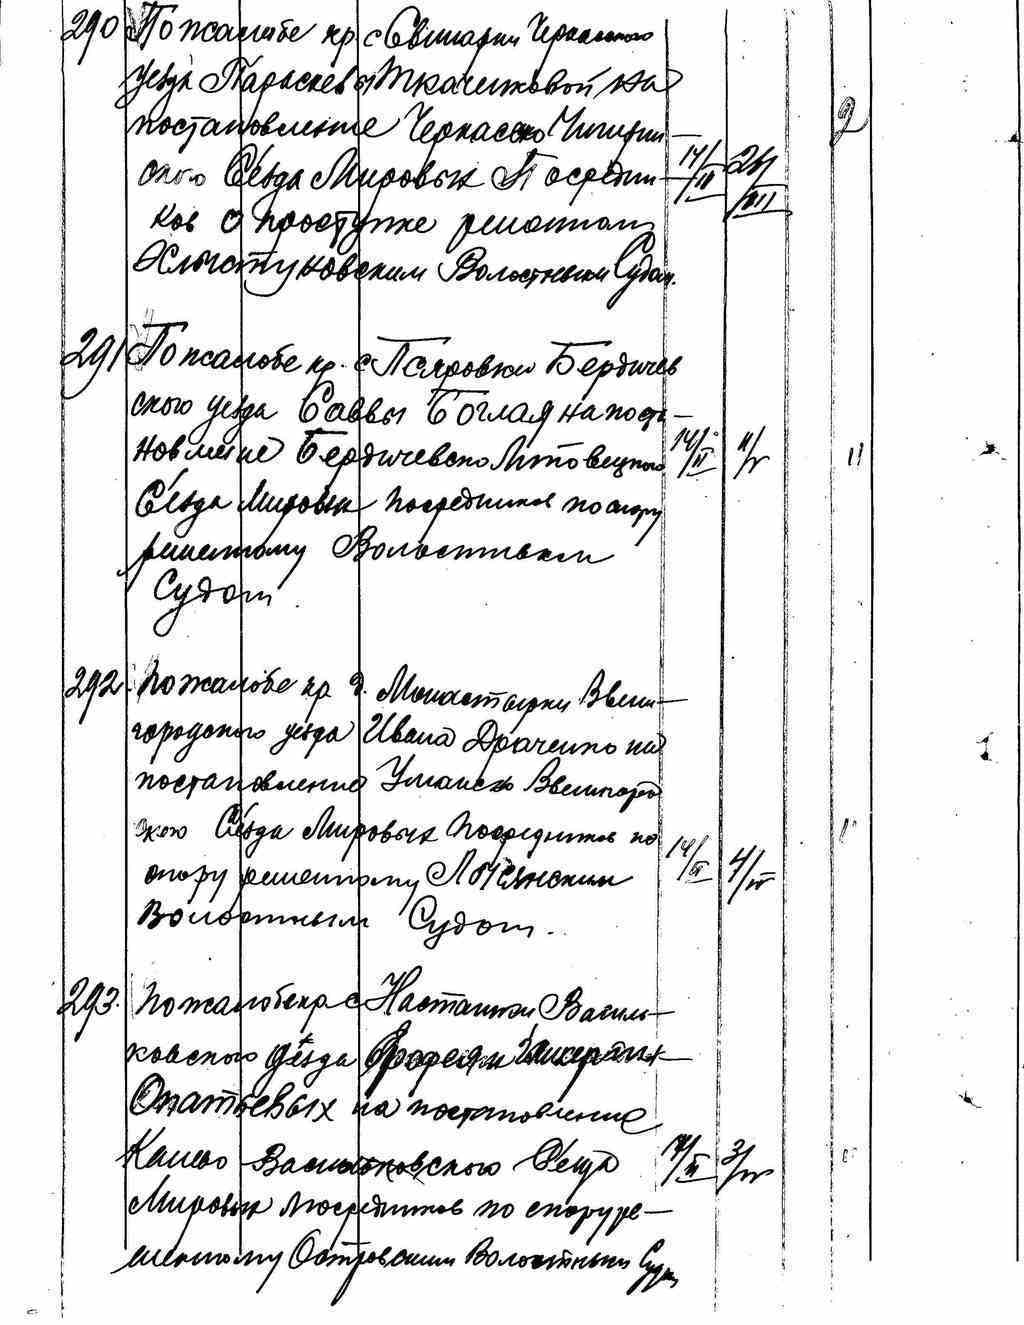 290 По жалобе кр. с Свинарки Черкасского
уезда Параскевы Ткаченковой на
постановление Черкасско Чигирин-
ского Съезда Мировых Посредни- 14/II 26/VII 2
ков о проступке решенном
Хлыстуновским Волостным Судом.
291 По жалобе кр. с Псяровки Бердичев
ского уезда Саввы Боглая на поста-
новление Бердичевско Липовецкого 14/II 11/V 11
Съезда Мировых Посредников по спору
решенному Волостным
Судом
292. По жалобе кр д. Монастырки Звени-
городского уезда Ивана Драченко на
постановление Уманско Звенигород
ского Съезда Мировых Посредников по
спору решенному Лысянским 14/II 4/IV
Волостным Судом.
293. По жалобе кр с Насташки Василь-
ковского уезда
Опатьевых на постановление
Киево-Васильковского Съезда 14/II 3/IV
Мировых Посредников по спору ре-
шенному Островским Волостным Судом